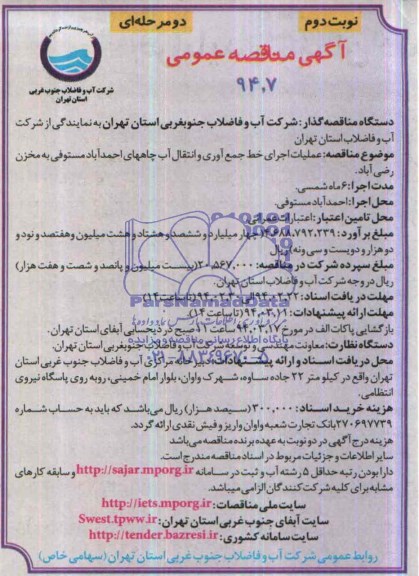 نوبت دوم
دو مرحله‌ای
آگهی مناقصه عمومی
۹۴.۷
شرکت آب و فاضلاب جنوب غربی
استان تهران
دستگاه مناقصه گذار: شرکت آب و فاضلاب جنوبغربی استان تهران به نمایندگی از شرکت
آب و فاضلاب استان تهران
موضوع مناقصه: عملیات اجرای خط جمع آوری و انتقال آب چاههای احمدآباد مستوفی به مخزن
رضی آباد.
مدت اجرا: ۶ ماه شمسی.
محل اجرا: احمدآباد مستوفی.
محل تامین اعتبار: اعتبارات عمرانی.
مبلغ برآورد: ۴.۶۸۸.۷۹۲.۲۳۹ (چهار میلیارد و ششصد و هشتاد و هشت میلیون و هفتصد و نود و
دو هزار و دویست و سی و نه) ریال
مبلغ سپرده شرکت در مناقصه: ۲۰.۵۶۷.۰۰۰ (بیست میلیون و پانصد و شصت و هفت هزار)
ریال در وجه شرکت آب و فاضلاب استان تهران.
مهلت دریافت اسناد: (تا ساعت ۱۴)
مهلت ارائه پیشنهادات: (تا ساعت ۱۴)
بازگشایی پاکات الف در مورخ ۹۴.۰۳.۱۷ ساعت صبح در دیحسابی آبفای استان تهران.
دستگاه نظارت: معاونت مهندسی و توسعه شرکت آب و فاضلاب جنوبغربی استان تهران.
محل دریافت اسناد و ارائه پیشنهادات: دبیرخانه مرکزی آب و فاضلاب جنوب غربی استان
تهران واقع در کیلومتر ۲۲ جاده ساوه، شهرک واوان، بلوار امام خمینی، روبه روی پاسگاه نیروی
انتظامی.
هزینه خرید اسناد: ۳۰۰.۰۰۰ (سیصد هزار) ریال می‌باشد که باید به حساب شماره
۲۷۰۶۹۷۷۳۹ بانک تجارت شعبه واوان واریز و فیش نقدی ارائه گردد.
هزینه درج آگهی در دو نوبت به عهده برنده مناقصه می‌باشد
سایر اطلاعات و جزئیات مربوط در اسناد مناقصه مندرج است.
دارا بودن رتبه حداقل ۵ رشته آب و ثبت در سامانه http://sajar.mporg.ir و سابقه کارهای
مشابه برای کلیه شرکت کنندگان الزامی میباشد.
سایت ملی مناقصات: http://iets.mporg.ir
سایت آبفای جنوب غربی استان تهران: Swest.tpww.ir
سایت سامانه کشوری: http://tender.bazresi.ir
روابط عمومی شرکت آب و فاضلاب جنوب غربی استان تهران (سهامی خاص)
ParsNamadData
پایگاه اطلاع رسانی مناقصه و مزایده
۰۲۱-۸۸۳۴۹۶۷۰-۵